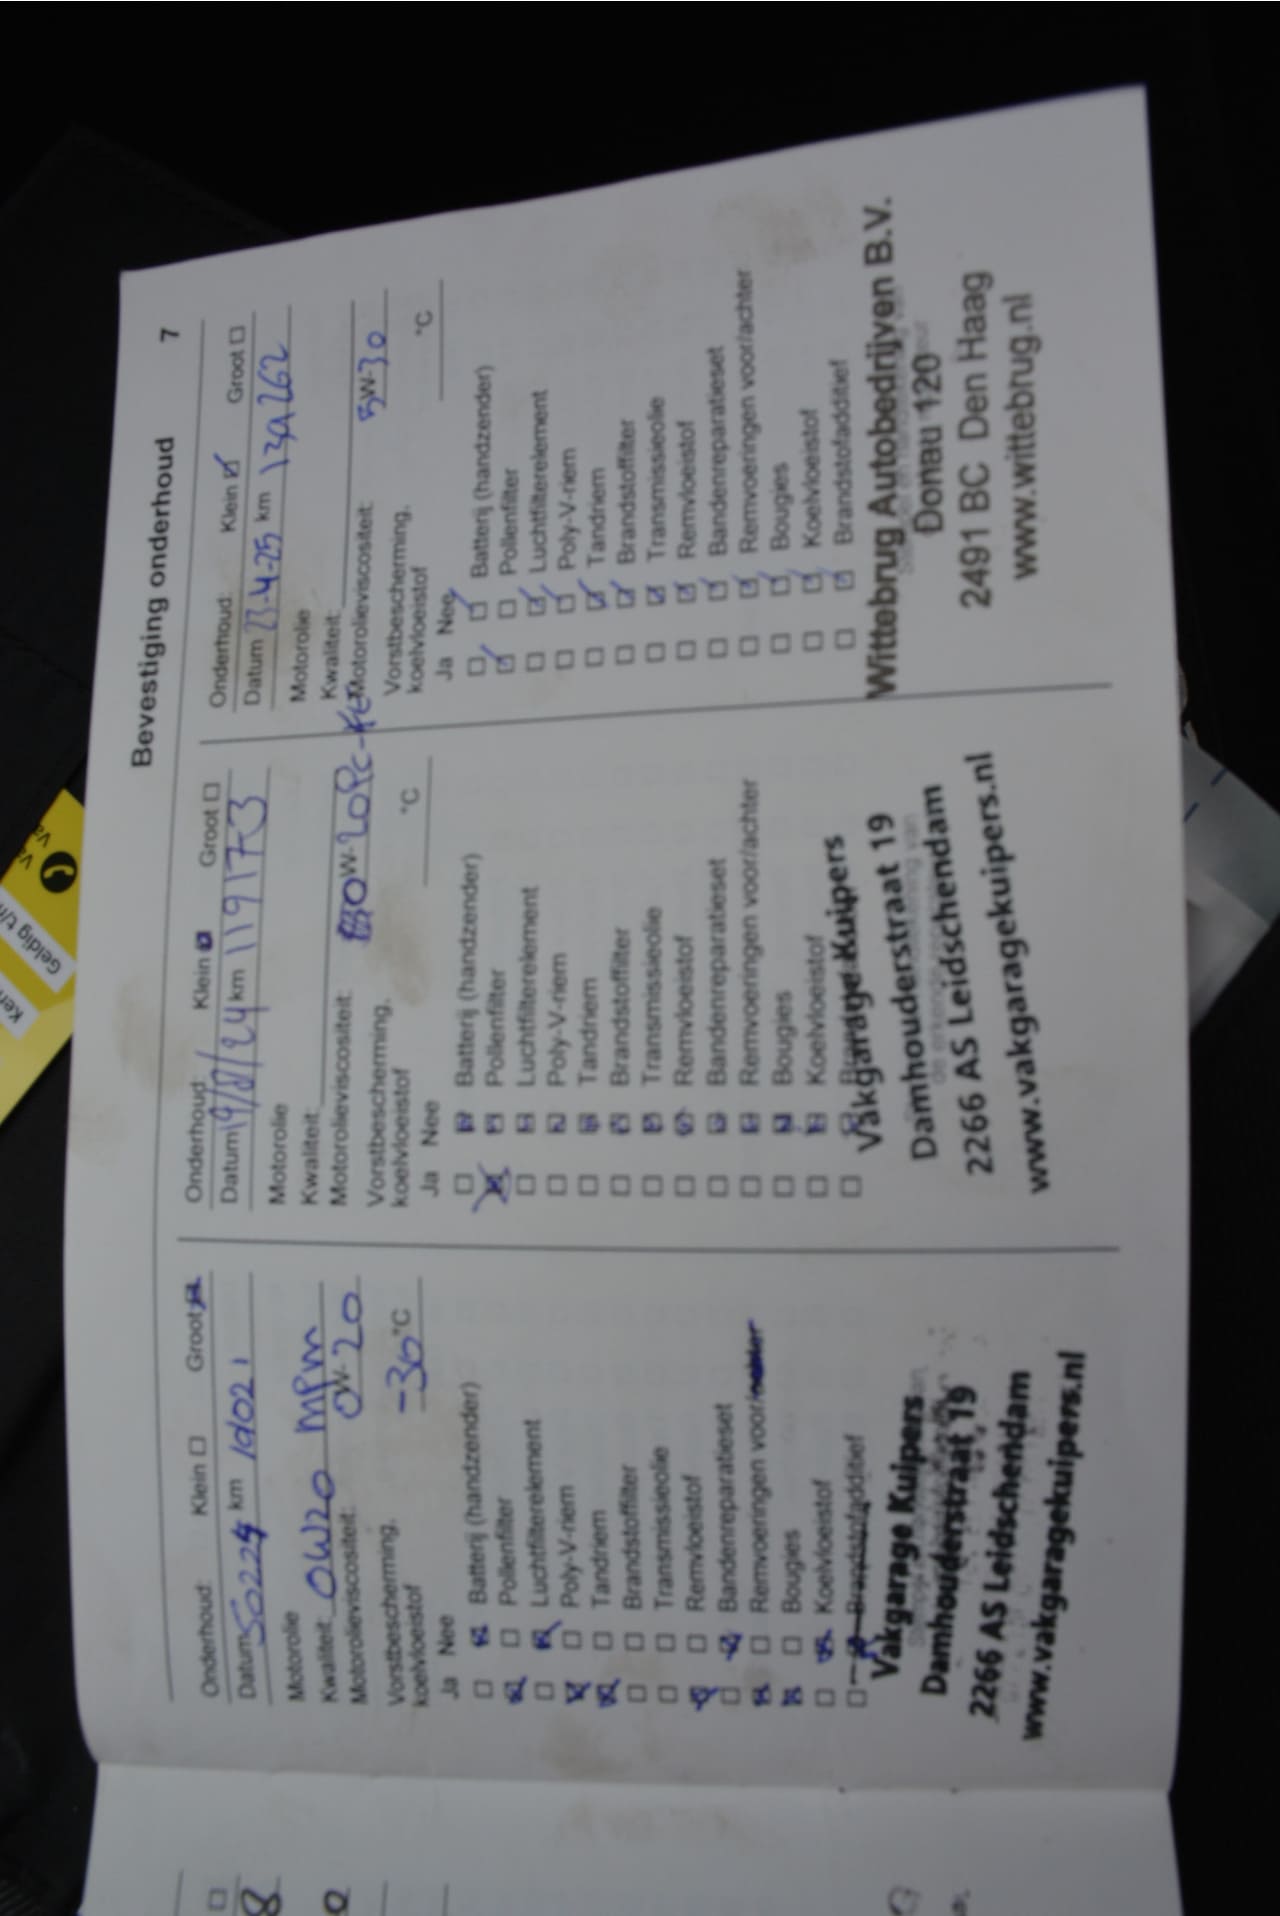 Bevestiging onderhoud 7
Onderhoud: Klein Groot
Datum km
Motorolie
Kwaliteit: 0W20 MPM
Motorolieviscositeit: 0W-20
Vorstbescherming,
koelvloeistof -30°C
Ja Nee
Batterij (handzender)
Pollenfilter
Luchtfilterelement
Poly-V-riem
Tandriem
Brandstoffilter
Transmissieolie
Remvloeistof
Bandenreparatieset
Remvoeringen voor/achter
Bougies
Koelvloeistof
Brandstofadditief
Vakgarage Kuipers
Damhouderstraat 19
2266 AS Leidschendam
www.vakgaragekuipers.nl
Onderhoud: Klein Groot
Datum 19/8/24 km 119173
Motorolie
Kwaliteit:
Motorolieviscositeit: 0W-20
Vorstbescherming,
koelvloeistof °C
Ja Nee
Batterij (handzender)
Pollenfilter
Luchtfilterelement
Poly-V-riem
Tandriem
Brandstoffilter
Transmissieolie
Remvloeistof
Bandenreparatieset
Remvoeringen voor/achter
Bougies
Koelvloeistof
Vakgarage Kuipers
Damhouderstraat 19
2266 AS Leidschendam
www.vakgaragekuipers.nl
Onderhoud: Klein Groot
Datum 23-4-25 km
Motorolie
Kwaliteit:
Motorolieviscositeit: 5W-30
Vorstbescherming,
koelvloeistof °C
Ja Nee
Batterij (handzender)
Pollenfilter
Luchtfilterelement
Poly-V-riem
Tandriem
Brandstoffilter
Transmissieolie
Remvloeistof
Bandenreparatieset
Remvoeringen voor/achter
Bougies
Koelvloeistof
Brandstofadditief
Wittebrug Autobedrijven B.V.
Donau 120
2491 BC Den Haag
www.wittebrug.nl
Geldig t/m